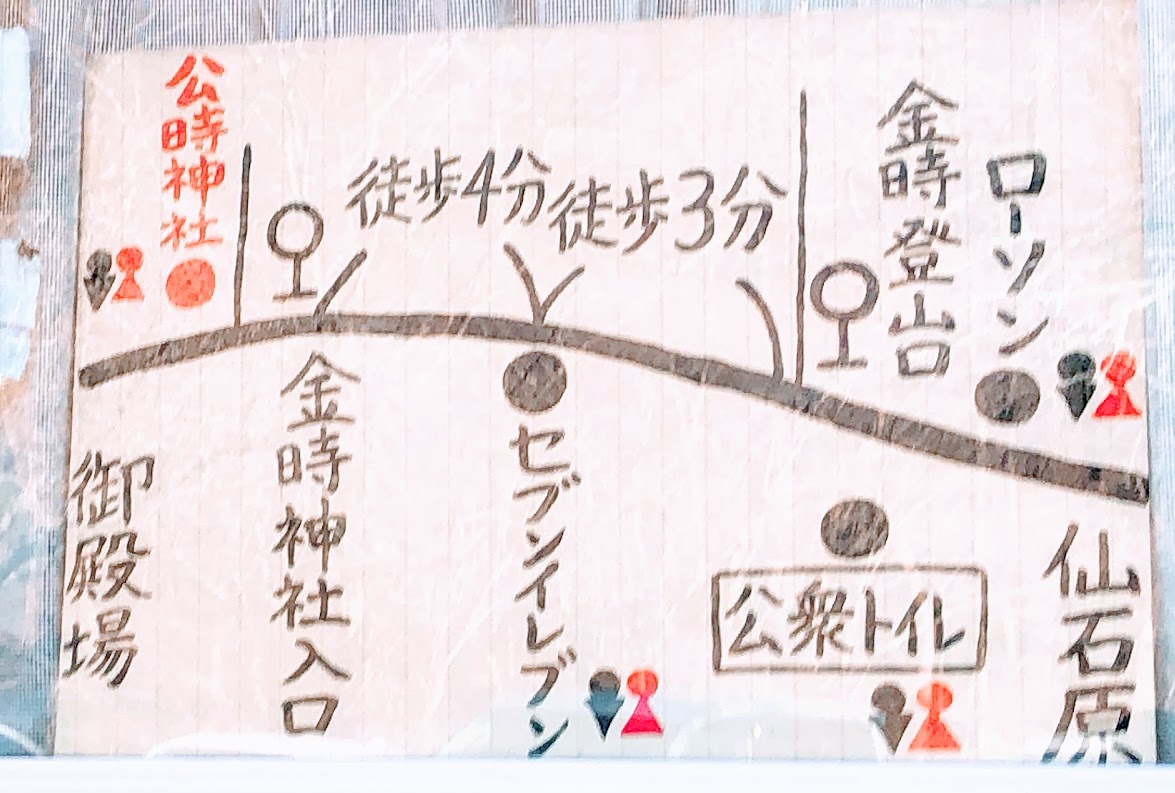 公時神社
徒歩4分
徒歩3分
金時登山口
ローソン
御殿場
金時神社入口
セブンイレブン
公衆トイレ
仙石原